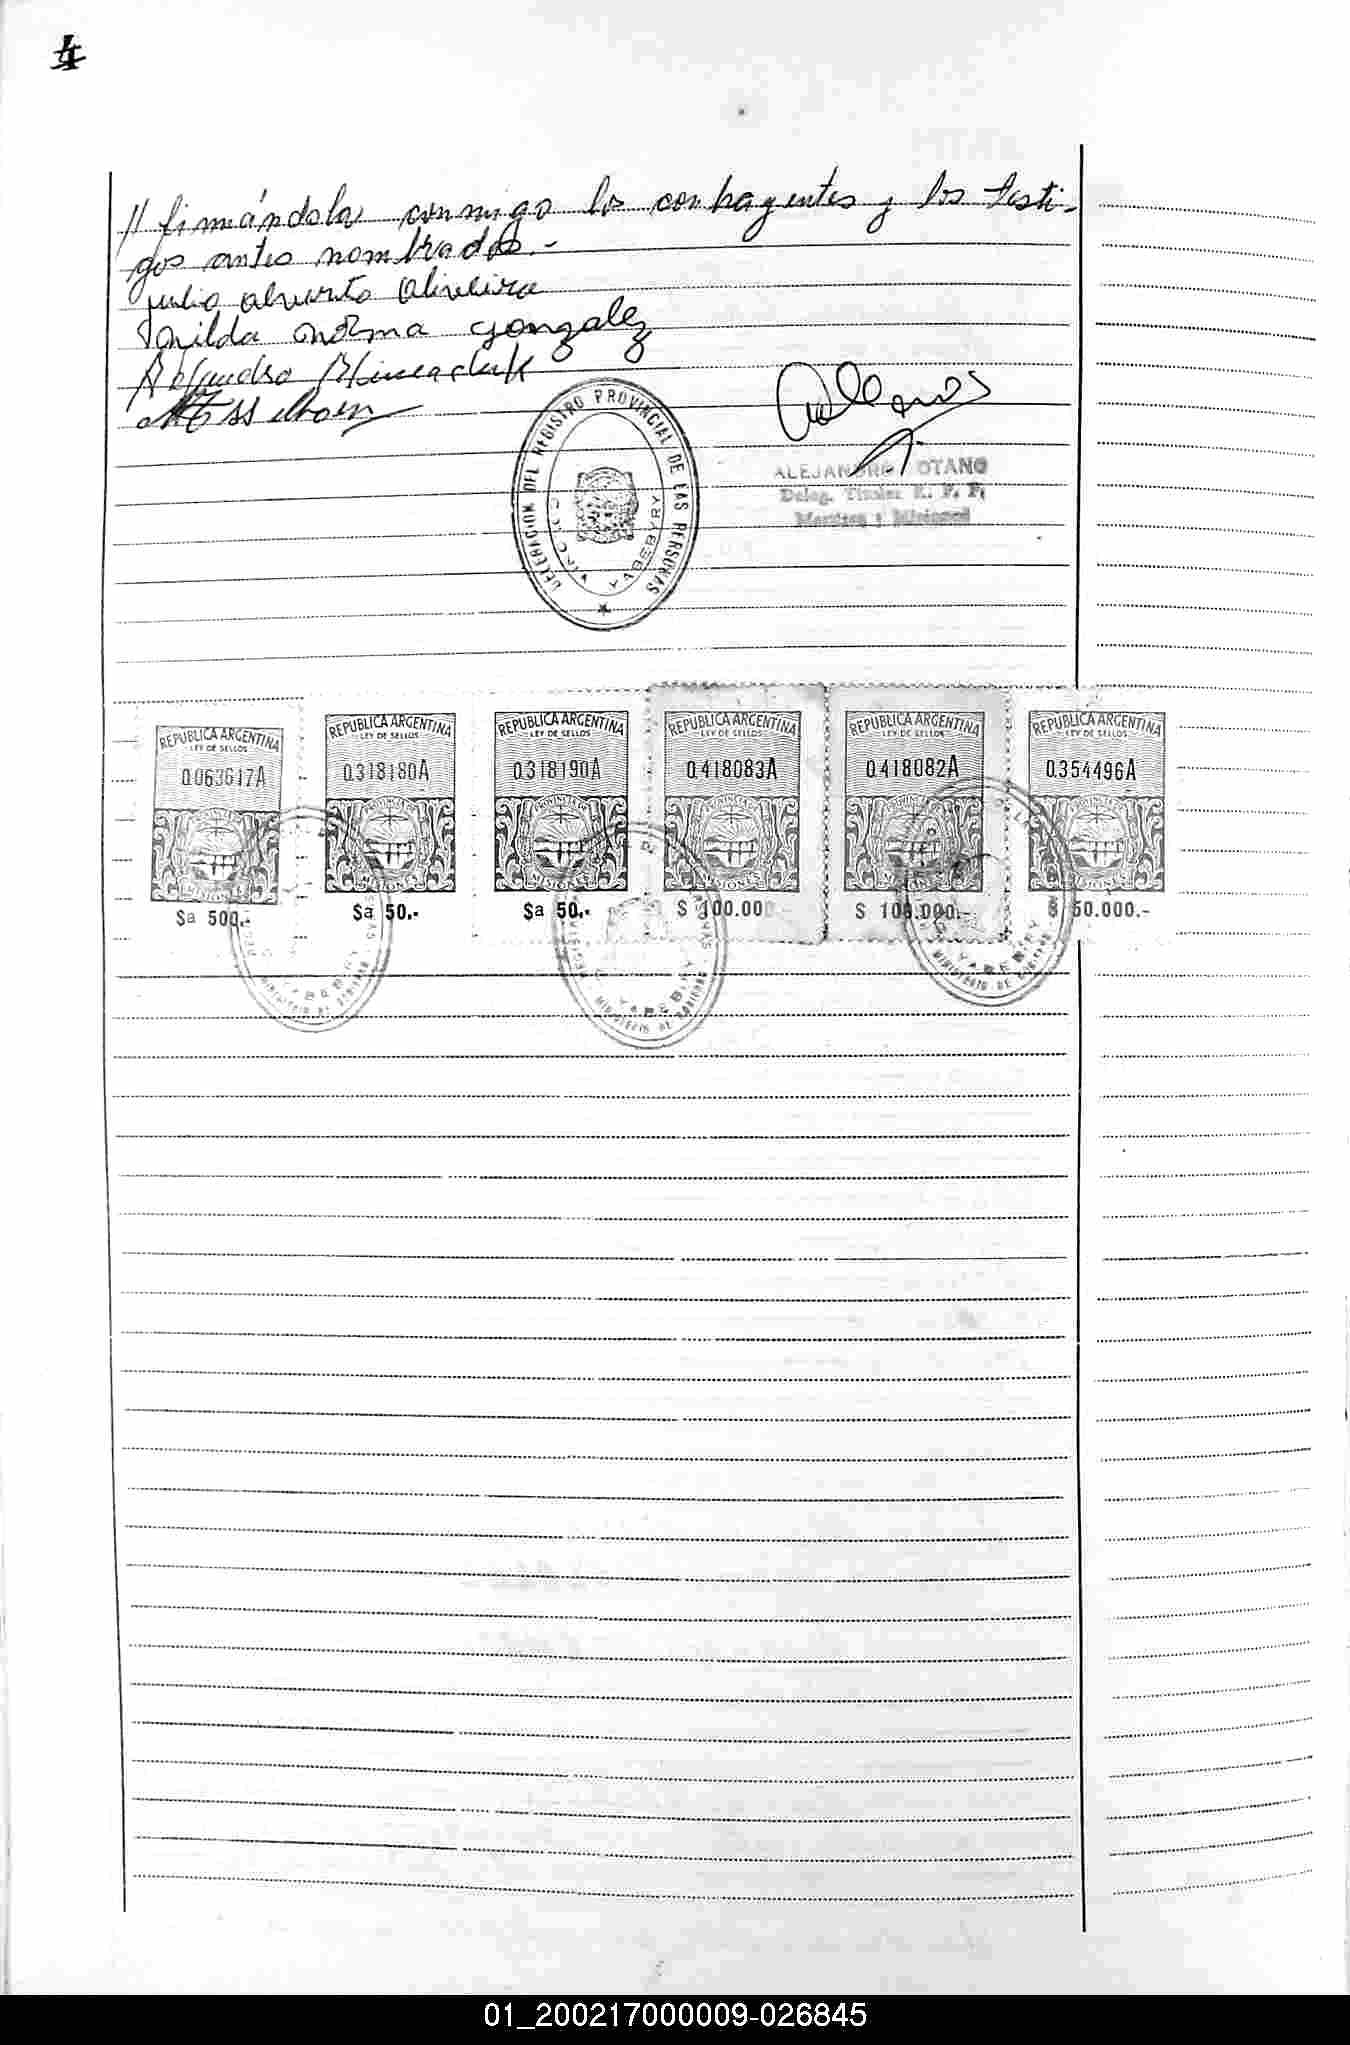 4
// firmándola conmigo los contrayentes y los testi-
gos antes nombrados.-
julio alverto Oliveira
nilda norma gonzalez
DELEGACION DEL REGISTRO PROVINCIAL DE LAS PERSONAS
YABEBYRY
ALEJANDRO OTANO
Deleg. Titular R. P. P.
Misiones
REPUBLICA ARGENTINA
LEY DE SELLOS
0.063617A
PROVINCIA DE
MISIONES
$a 500.-
REPUBLICA ARGENTINA
LEY DE SELLOS
0.318180A
PROVINCIA DE
MISIONES
$a 50.-
REPUBLICA ARGENTINA
LEY DE SELLOS
0.318190A
PROVINCIA DE
MISIONES
$a 50.-
REPUBLICA ARGENTINA
LEY DE SELLOS
0.418083A
PROVINCIA DE
MISIONES
$ 100.000
REPUBLICA ARGENTINA
LEY DE SELLOS
0.418082A
PROVINCIA DE
MISIONES
$ 100.000.-
REPUBLICA ARGENTINA
LEY DE SELLOS
0.354496A
PROVINCIA DE
MISIONES
$ 50.000.-
YABEBIRY
MINISTERIO DE GOBIERNO
YABEBIRY
MINISTERIO DE GOBIERNO
YABEBIRY
MINISTERIO DE GOBIERNO
01_200217000009-026845